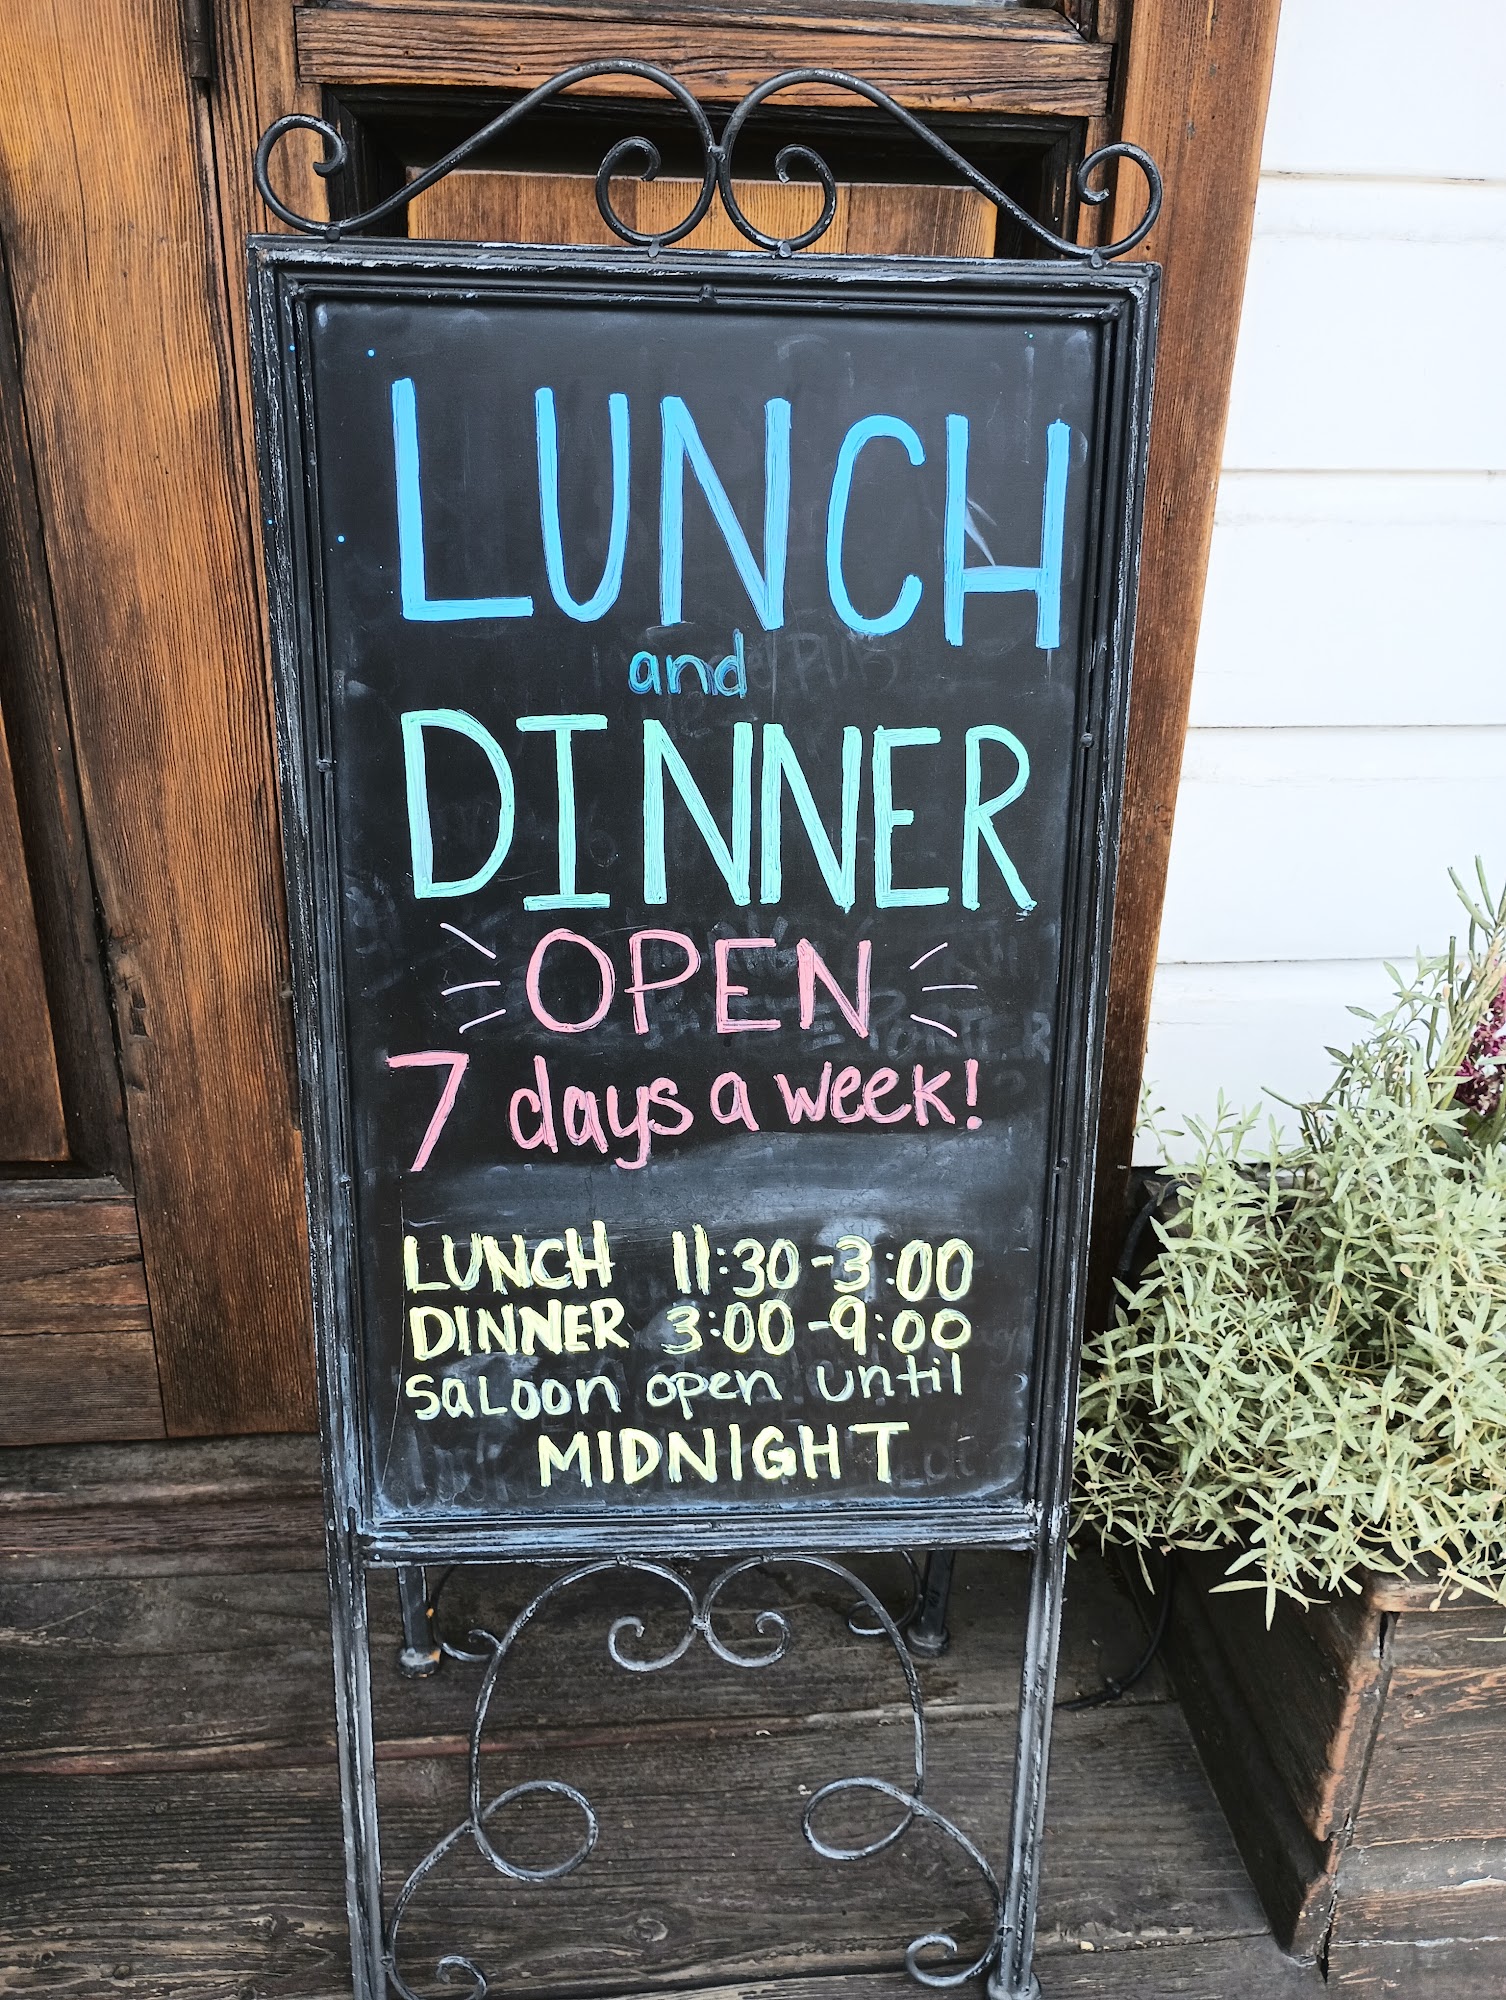 LUNCH
and
DINNER
OPEN
7 days a week!
LUNCH 11:30-3:00
DINNER 3:00-9:00
saloon open until
MIDNIGHT